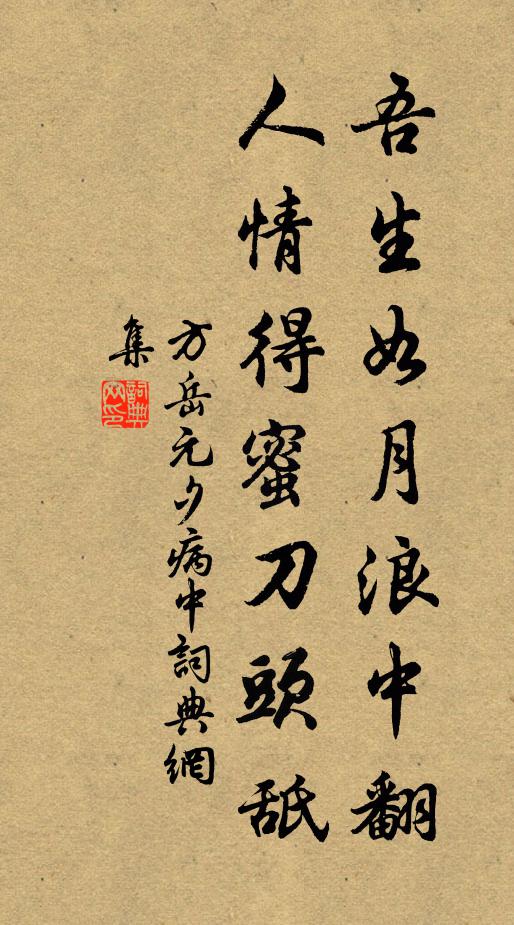 吾生如月浪中翻
人情得蜜刀頭舐
方岳元夕病中詞典網
集
詞典網印